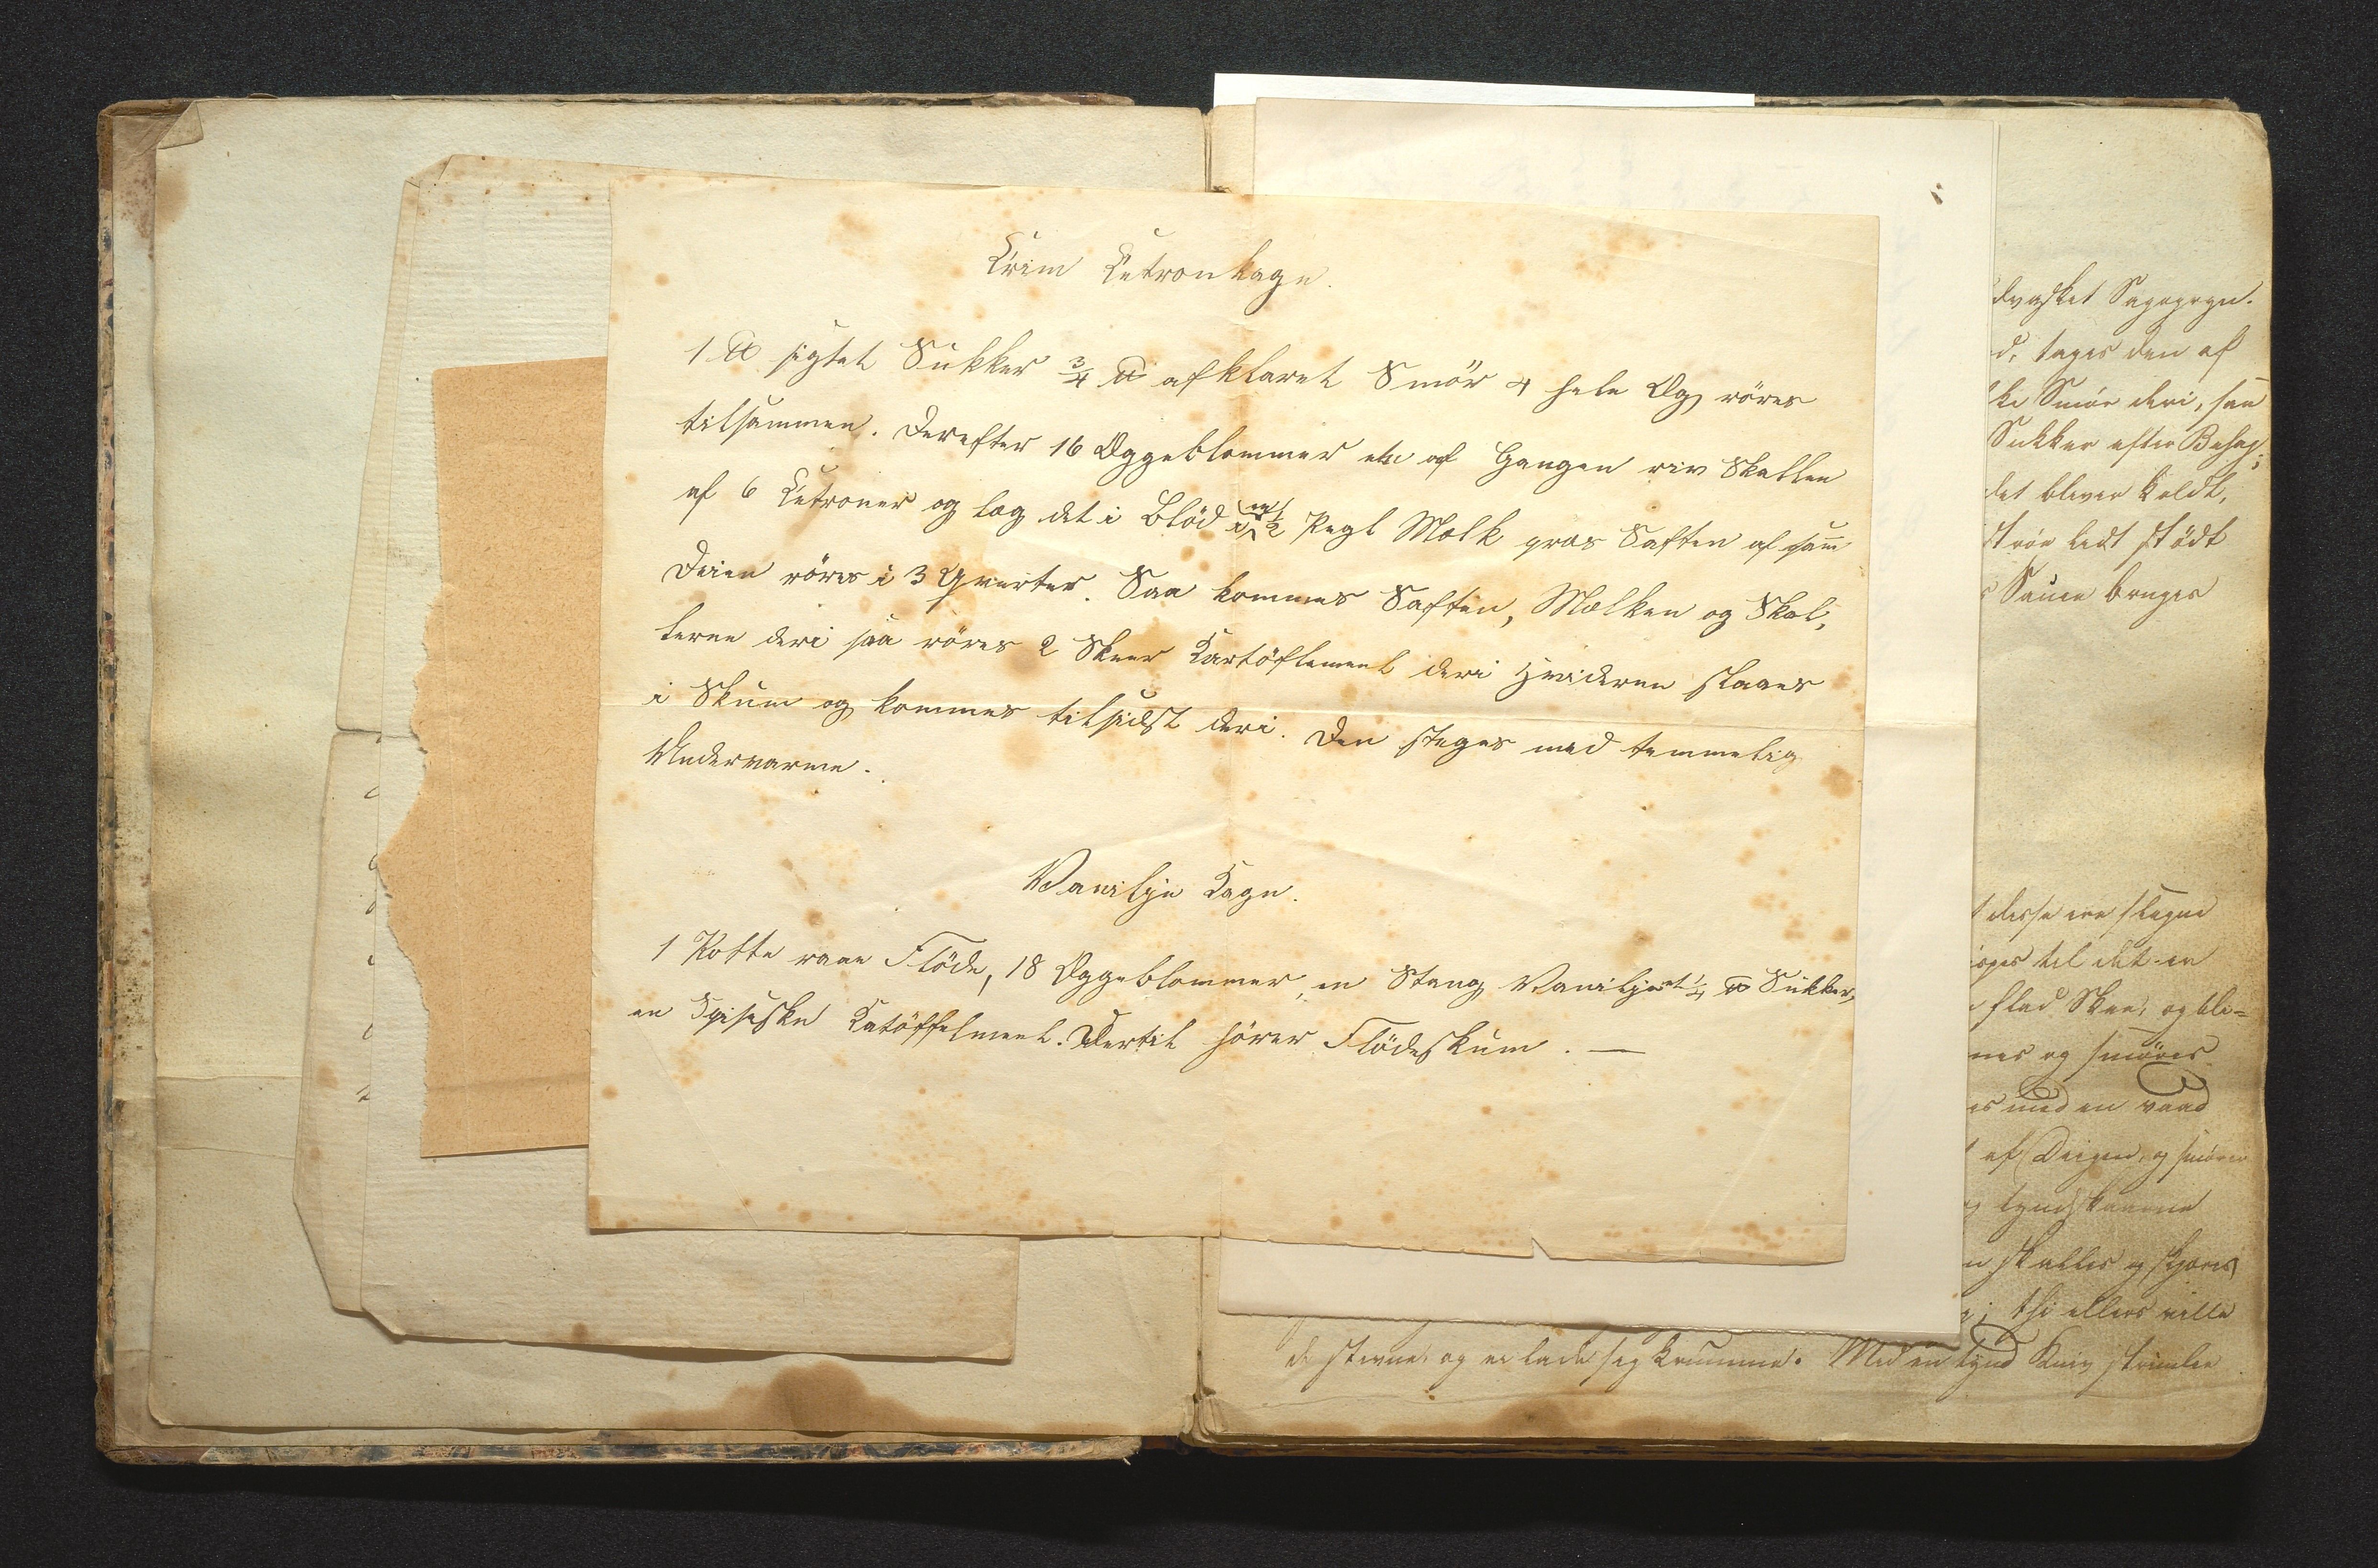 Krim Citronkage.
1 ℔ sigtet Sukker ¾ ℔ afklaret Smör 4 hele Æg röres
tilsammen. Derefter 16 Æggeblommer een af Gangen riv Skallen
af 6 Citroner og læg det i Blöd i ½ Pægl Mælk pres Saften af sam̄
Deien röres i 3 Qvarter. Saa kommes Saften, Mælken og Skal,
lerne deri saa röres 2 Skeer Kartöflemeel deri Hviderne slaaes
i Skum og kommes tilsidst deri. Den steges med temmelig
Undervarme.
Vanilje Kage.
1 Potte raae Flöde, 18 Æggeblommer, en Stang Vanilje et ¼ ℔ Sukker,
en Spiseske Katöffelmeel. Dertil hörer Flödeskum. —
dvasket Sagogryn.
d, tages den af
ke Smör deri, saa
Sukker efter Behag;
det bliver koldt,
strör lidt stödt
Sauce bruges
t disse ere slagne
til det en
flad Skee, og bli=
nes og smöres
es med en vaad
af Deigen, og smöres
tyndskaarne
skalles og skjæres
; thi ellers ville
de stivne og ei lade sig krumme. Med en tynd Kniv strimler